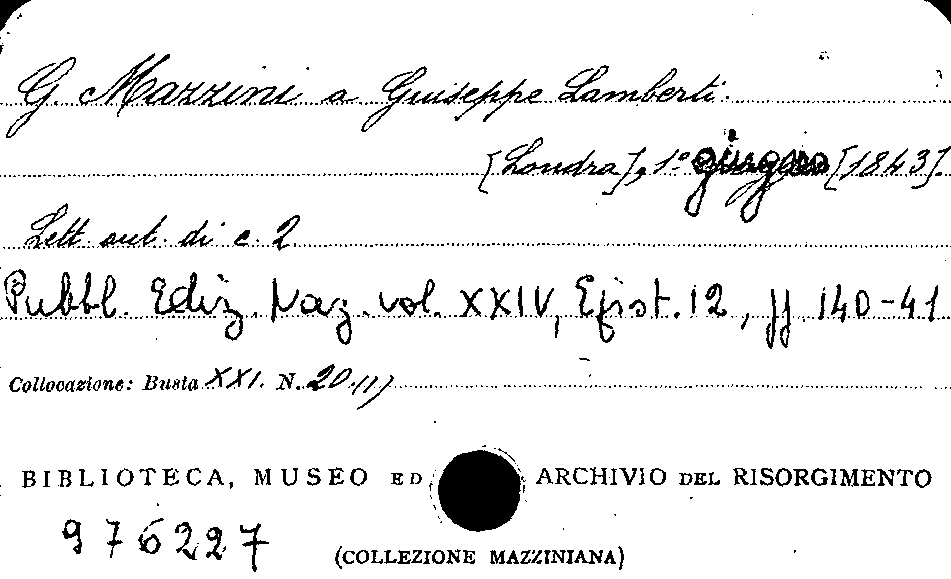 G. Mazzini a Giuseppe Lamberti.
[Londra], 1° giugno [1843].
Lett. aut. di c. 2
Pubbl. Ediz. Naz. vol. XXIV, Epist. 12, pp. 140-41
Collocazione: Busta XXI. N. 20.(1)
BIBLIOTECA, MUSEO ED ARCHIVIO DEL RISORGIMENTO
976227
(COLLEZIONE MAZZINIANA)